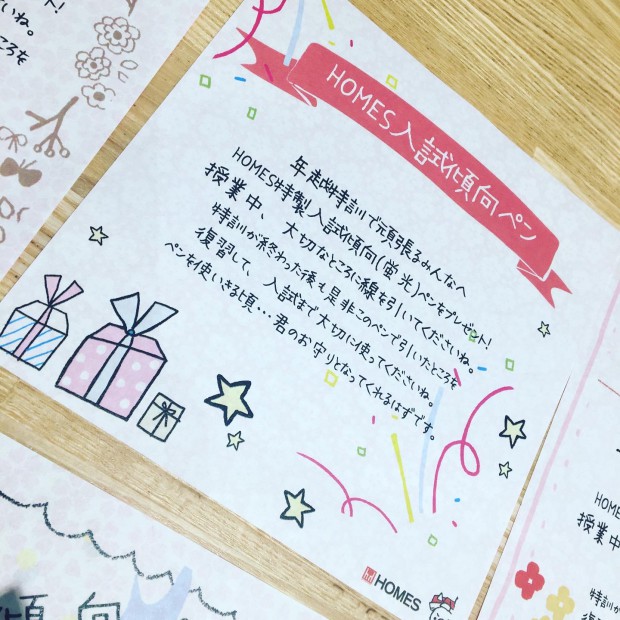 ント!
さいね。
ところを
HOMES入試傾向ペン
年越特訓で頑張るみんなへ
HOMES特製入試傾向(蛍光)ペンをプレゼント!
授業中、大切なところに線を引いてくださいね。
特訓が終わった後も是非このペンで引いたところを
復習して、入試まで大切に使ってくださいね。
ペンを使いきる頃…君のお守りとなってくれるはずです。
HOMES
授業中
傾向